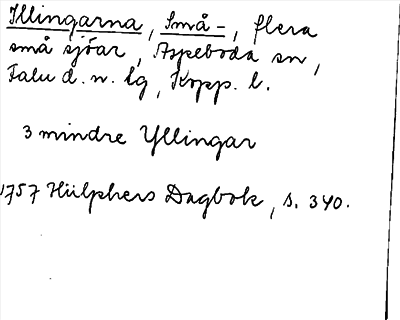 Yllingarna, Små-, flera
små sjöar, Aspeboda sn,
Falu d. n. lg, Kopp. l.
3 mindre Yllingar
1757 Hülphers Dagbok, s. 340.